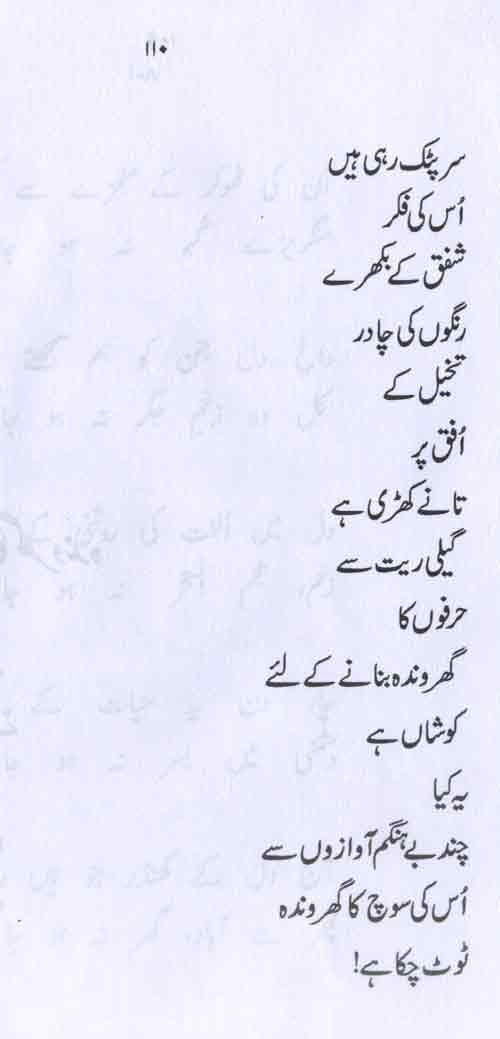 ۱۱۰
سر پٹک رہی ہیں
اُس کی فکر
شفق کے بکھرے
رنگوں کی چادر
تخیل کے
اُفق پر
تانے کھڑی ہے
گیلی ریت سے
حرفوں کا
گھروندہ بنانے کے لئے
کوشاں ہے
یہ کیا
چند بے ہنگم آوازوں سے
اُس کی سوچ کا گھروندہ
ٹوٹ چکا ہے!